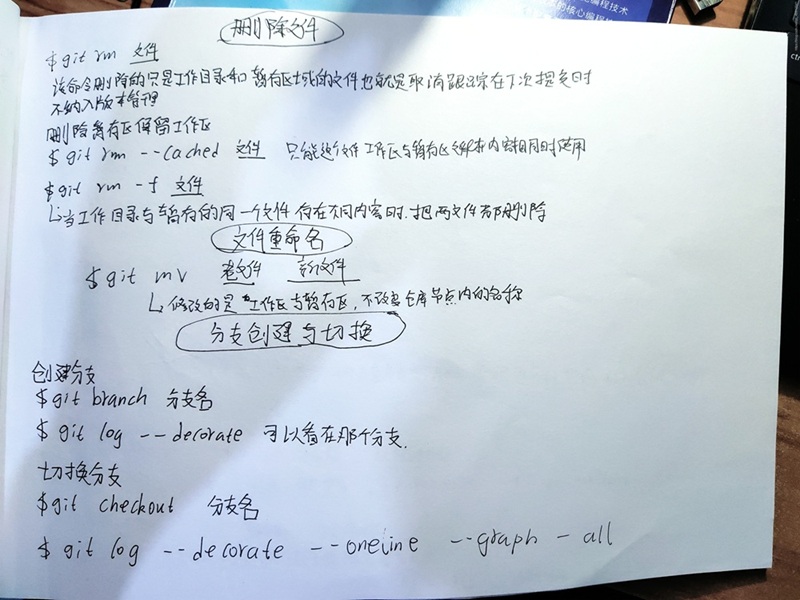 编程技术
的核心编程
删除文件
$ git rm 文件
该命令删除的只是工作目录和暂存区域的文件也就是取消跟踪在下次提交时
不纳入版本管理
删除暂存区保留工作区
$ git rm --cached 文件 只能这个文件工作区与暂存区文件内容相同时使用
$ git rm -f 文件
↳当工作目录与暂存的同一个文件存在不同内容时.把两文件都删除
文件重命名
$ git mv 老文件 新文件
↳ 修改的是工作区与暂存区,不改变仓库节点内的名称
分支创建与切换
创建分支
$ git branch 分支名
$ git log --decorate 可以看在那个分支.
切换分支
$ git checkout 分支名
$ git log --decorate --oneline --graph -all